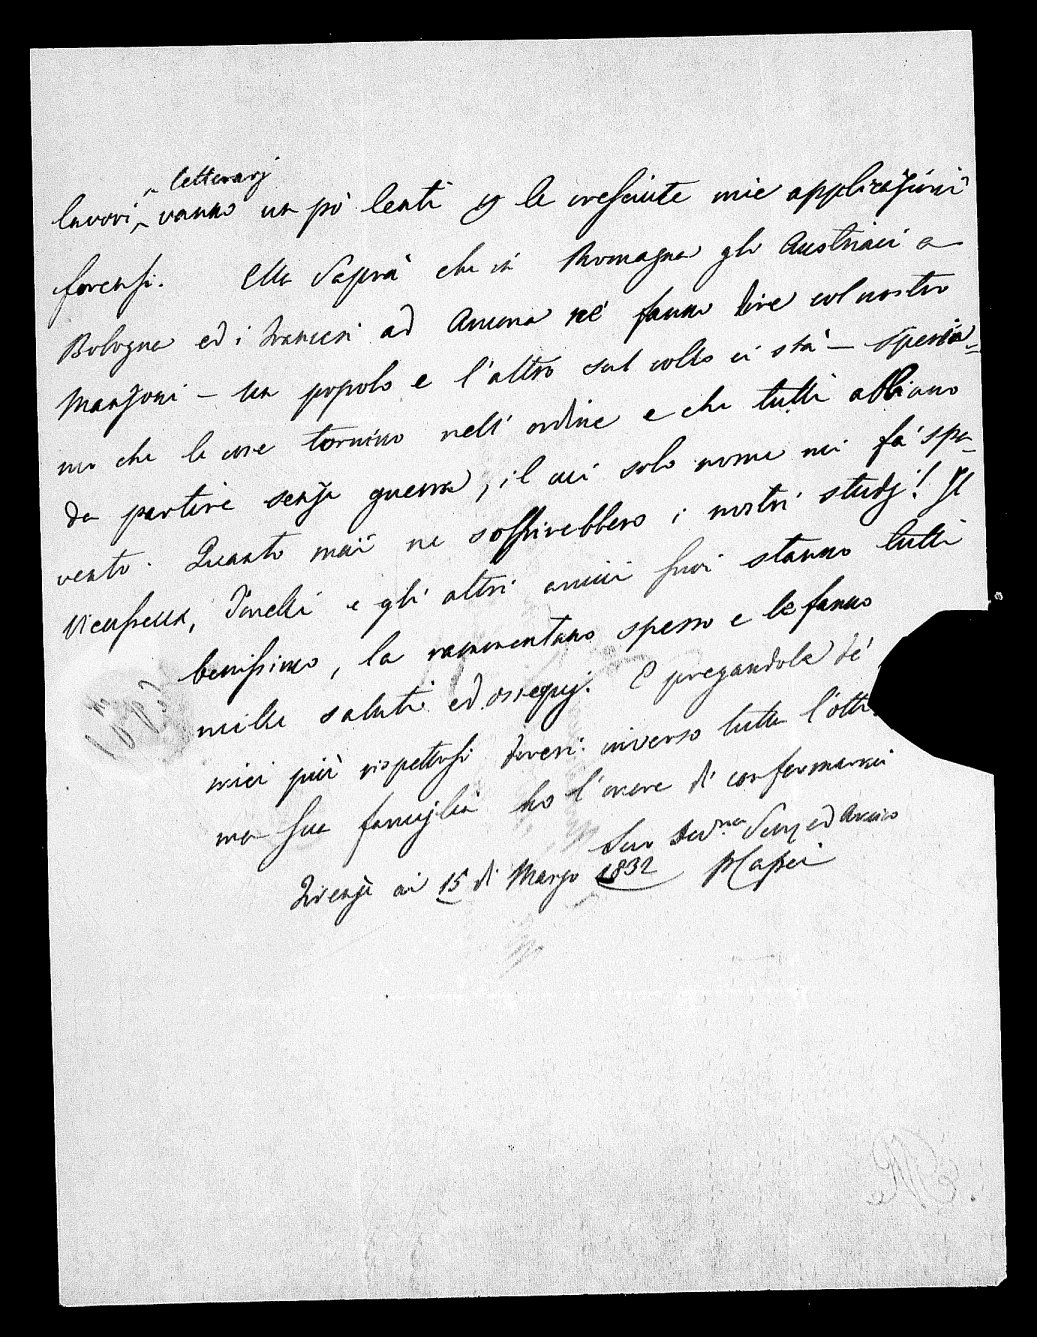 letterarj
lavori vanno un pò lenti p le cresciute mie applicazioni
forensi. Ella Saprà che in Romagna gli Austriaci a
Bologna ed i Francesi ad Ancona ne fanno dire col nostro
Manzoni - Un popolo e l'altro sul collo ci stà - Speria-
mo che le cose tornino nell' ordine e che tutti abbiano
da partire senza guerra, il cui solo nome mi fà spa-
vento. Quanto mai ne soffrirebbero i nostri studj! Il
e gli altri amici suoi stanno tutti
benissimo, la rammentano spesso e le fanno
mille saluti ed ossequj. E pregandola de'
miei più rispettosi doveri inverso tutta l'otti
ma Sua famiglia ho l'onore di confermarmi
Suo Dev.mo Serv ed Amico
Firenze ai 15 di Marzo 1832